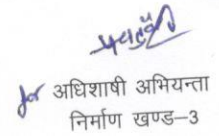 for अधिशाषी अभियन्ता
निर्माण खण्ड–3